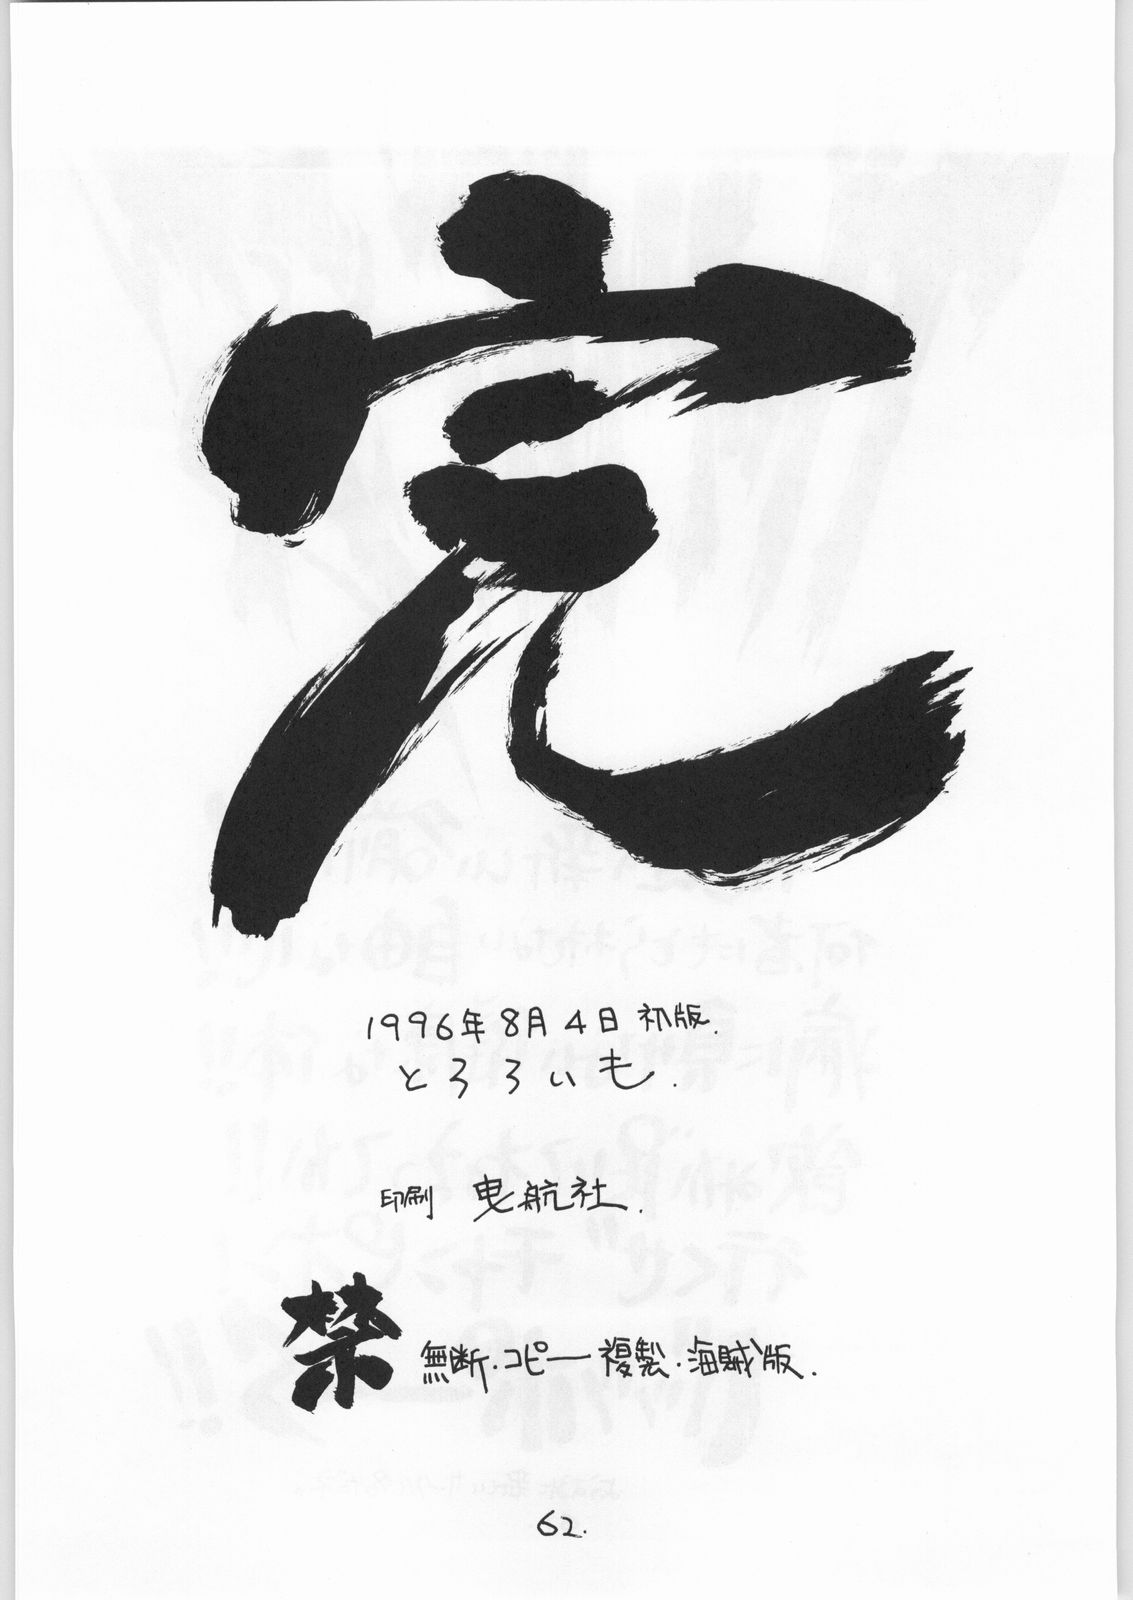 完
1996年8月4日 初版.
とろろいも.
印刷 曳航社.
禁 無断・コピー複製・海賊版.
62.